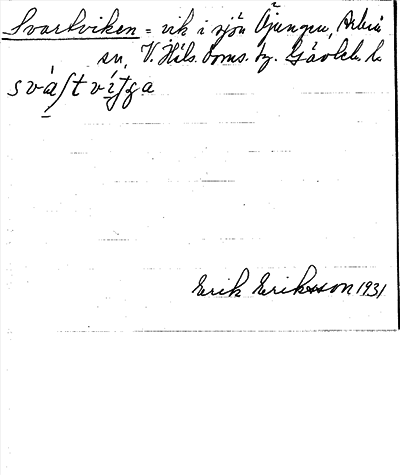 Svartviken = vik i sjön Öjungen, Arbrå
sn, V. Häls. doms. dy. Gävleb. l.
Erik Eriksson 1931